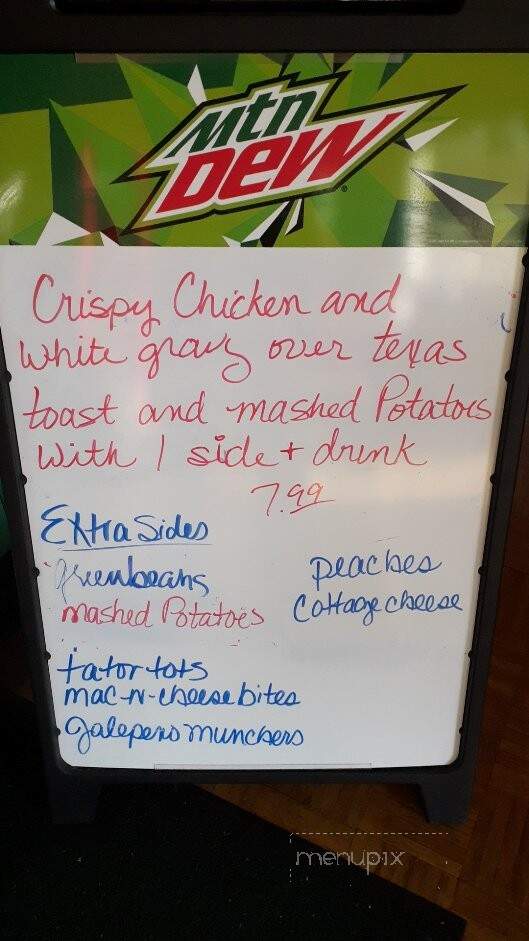 Mtn
DEW
Crispy Chicken and
white gravy over texas
toast and mashed Potatoes
with 1 side + drink
7.99
Extra Sides
greenbeans
mashed Potatoes
tator tots
mac-n-cheese bites
Jalepeno munchers
peaches
Cottage cheese
menupix